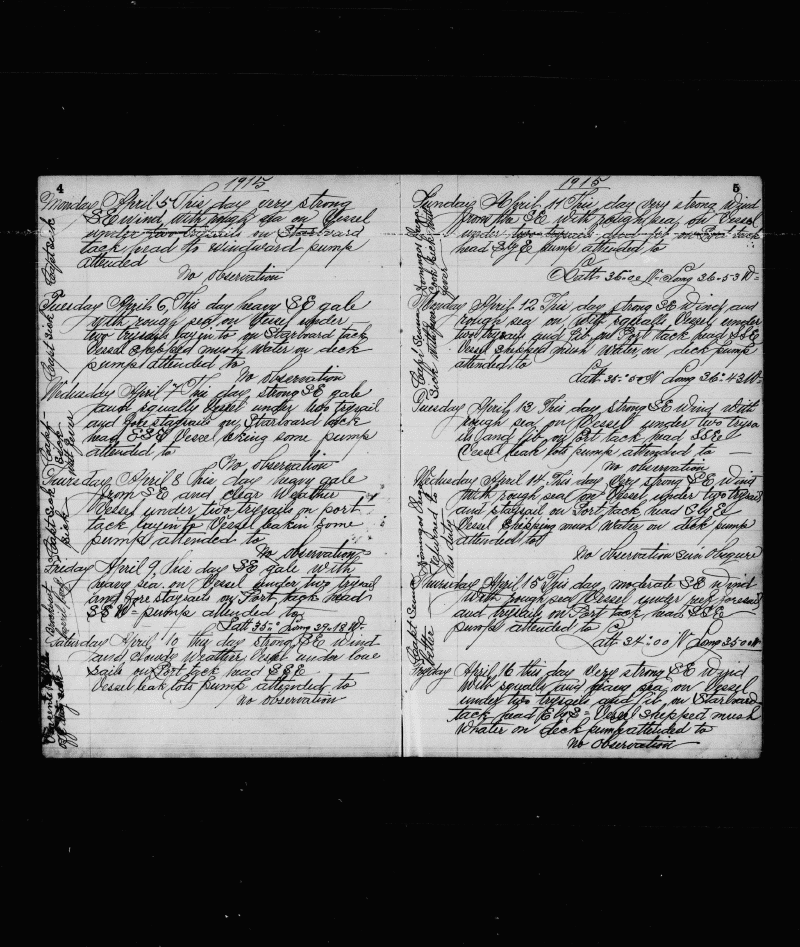 4
1915
Monday April 5 This day very strong
S.E wind with rough sea on Vessel
under two trysails on Starboard
tack head to windward pump
attended
No observation
Tuesday April 6, This day heavy SE gale
with rough sea on Vessel under
two trysails layin to on Starboard tack
Vessel shipped mush water on deck
pumps attended to
No observation
Wednesday April 7 This day strong SE gale
and squally Vessel under two trysail
and fore staysail on Starboard tack
head ESE Vessel some pump
attended to
No observation
Thursday April 8 This day heavy gale
from SE and clear Weather
Vessel under two trysails on port
tack layin to Vessel some
pumps attended to
No observation
Friday April 9, This day SE gale with
heavy sea on Vessel under two trysail
and fore staysails on Port tack head
S.S.W pump attended to
Latt 35 Long 39-18 W
Saturday April 10 this day strong SE wind
and Weather Vessel under
sails on Port tack head
Vessel leak lots pump attended to
no observation
Capt sick
Capt sick
Capt sick
1915
5
Sunday April 11 This day very strong wind
from the SE with rough sea on Vessel
under two trysails on Port tack
head pump attended to
Latt 35-00 N Long 36-53 W
Monday April 12 This day strong SE wind and
rough sea on with squalls Vessel under
two trysail and on Port tack head SSE
Vessel shipped mush Water on deck pump
attended to
Latt 35 N Long 36-43 W
Tuesday April 13 This day strong SE wind with
rough sea on Vessel under two
and on Port tack head SSE
Vessel leak lots pumps attended to
no observation
Wednesday April 14 This day very strong SE wind
with rough sea on Vessel under two trysail
and staysail on Port tack head E by E
Vessel shipping mush Water on deck pump
attended to
No observation sun
Thursday April 15 This day moderate SE wind
with rough sea Vessel under foresail
and trysail on Port tack head SSE
pumps attended to
Latt 34-00 N Long 35-0 W
Fryday April 16 this day very strong SE wind
with squally and heavy sea on Vessel
under two trysails and on Starboard
tack head Vessel shipped mush
Whater on deck pump attended to
No observation
Capt
letter